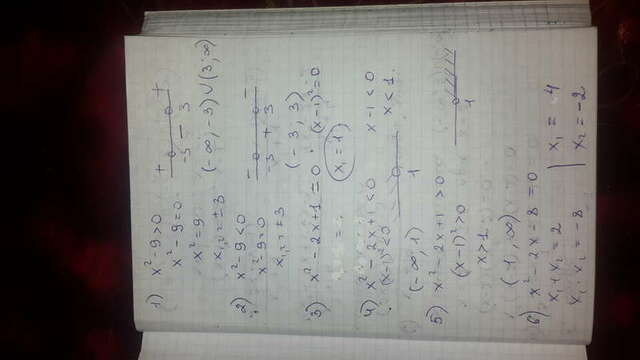 1) x² - 9 > 0
x² - 9 = 0
x² = 9
x₁,₂ = ±3
+ - +
-3 3
(-∞; -3) ∪ (3; ∞)
2) x² - 9 < 0
x² 9 = 0
x₁,₂ = ±3
- + -
-3 3
(-3; 3)
3) x² - 2x + 1 = 0 (x-1)² = 0
x₁ = 1
4) x² - 2x + 1 < 0 x - 1 < 0
(x-1)² < 0 x < 1
1
(-∞, 1)
5) x² - 2x + 1 > 0
(x-1)² > 0
x > 1
1
(-1, ∞)
6) x² - 2x - 8 = 0
x₁ + x₂ = 2 x₁ = 4
x₁ · x₂ = -8 x₂ = -2